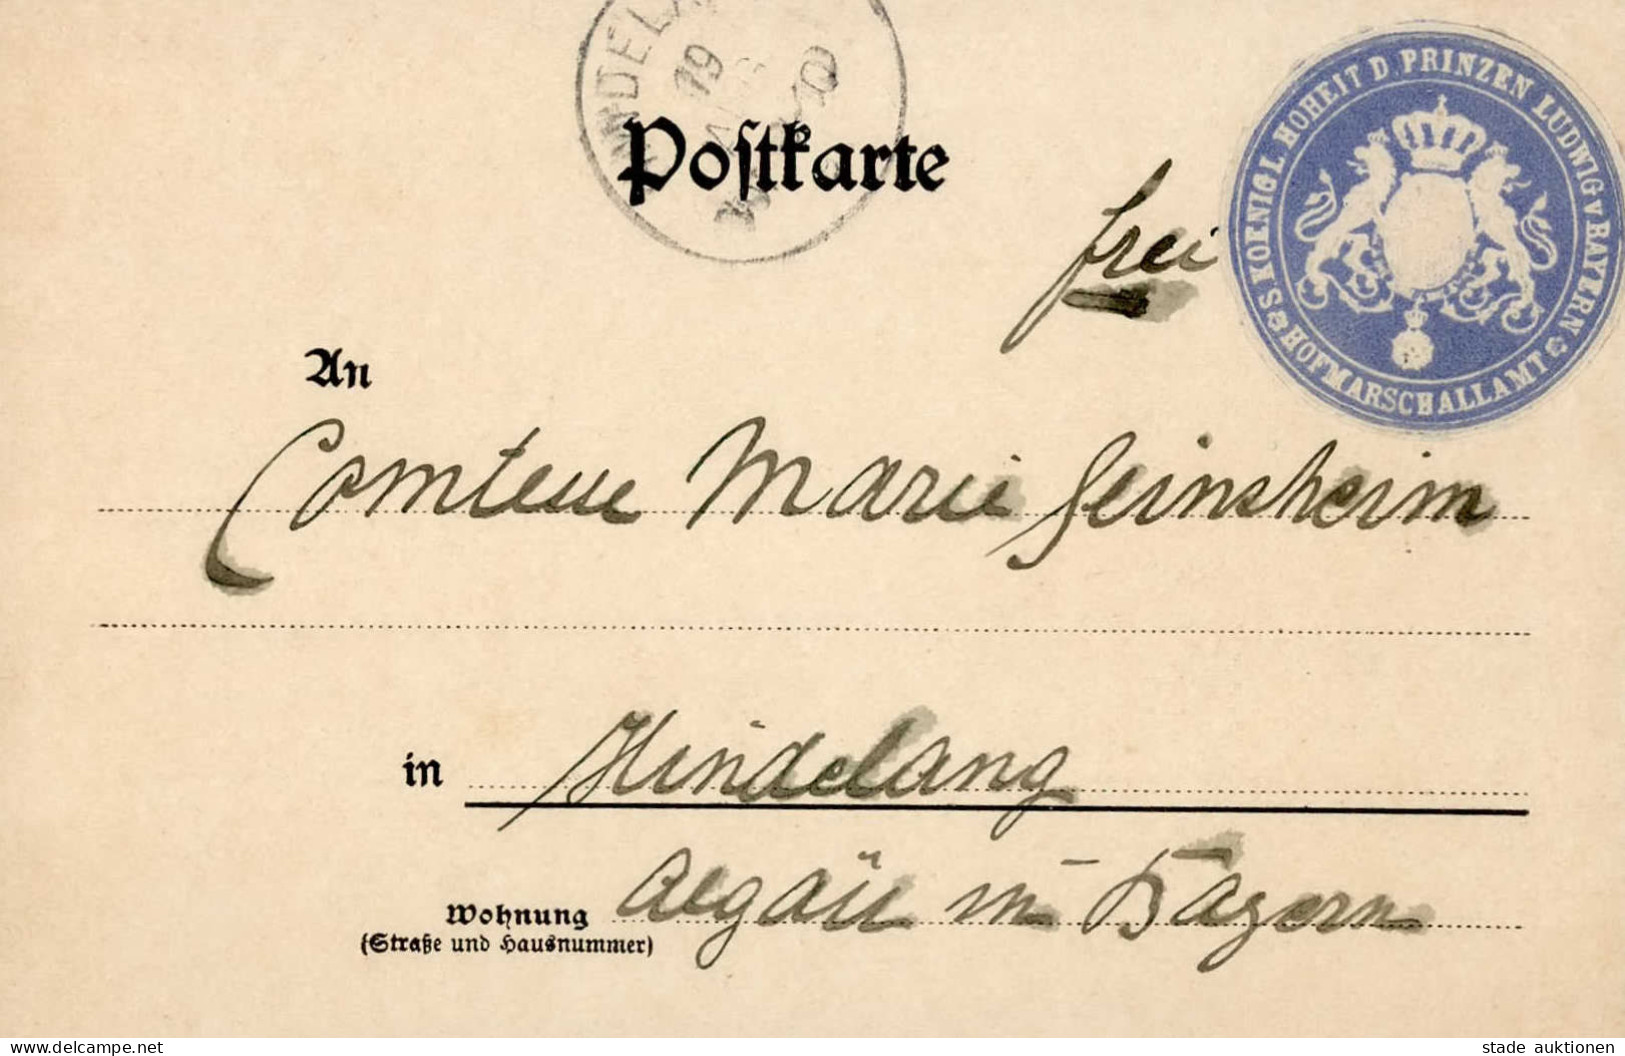 Postkarte
frei
S. KOENIGL HOHEIT D. PRINZEN LUDWIG v BAYERN
HOFMARSCHALLAMT
An
Comtesse Marie Seinsheim
in Hindelang
Wohnung Alegäu in Bayern
(Straße und Hausnummer)
www.delcampe.net
stade auktionen